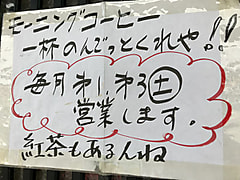 モーニングコーヒー
一杯のんごっとくれや!!
毎月オ1.オ3㊏
営業します。
紅茶もあるんね